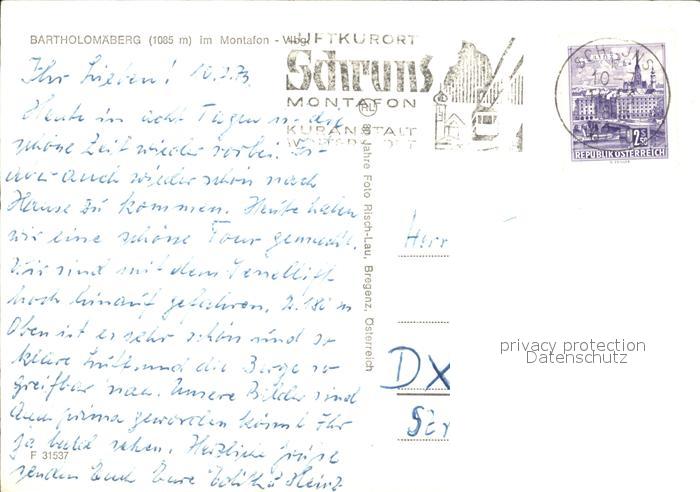 BARTHOLOMÄBERG (1085 m) im Montafon - Vlbg.
LUFTKURORT
Schruns
MONTAFON
KURANSTALT
WINTERSPORT
SCHRUNS
10
2 S 50
REPUBLIK ÖSTERREICH
Ihr Lieben! 10.2.73
Heute in acht Tagen ist die
schöne Zeit wieder vorbei. Ist
aber auch wieder schön nach
Hause zu kommen. Heute haben
wir eine schöne Tour gemacht.
Wir sind mit dem Sessellift
hoch hinauf gefahren.
Oben ist es sehr schön und so
klare Luft und die Berge so
greifbar nah. Unsere Bilder sind
auch prima geworden könnt Ihr
ja bald sehen. Herzliche Grüße
senden Euch Eure Edith u Heinz
80 Jahre Foto Risch-Lau, Bregenz, Österreich
RL
Herr
DX
F 31537
privacy protection
Datenschutz